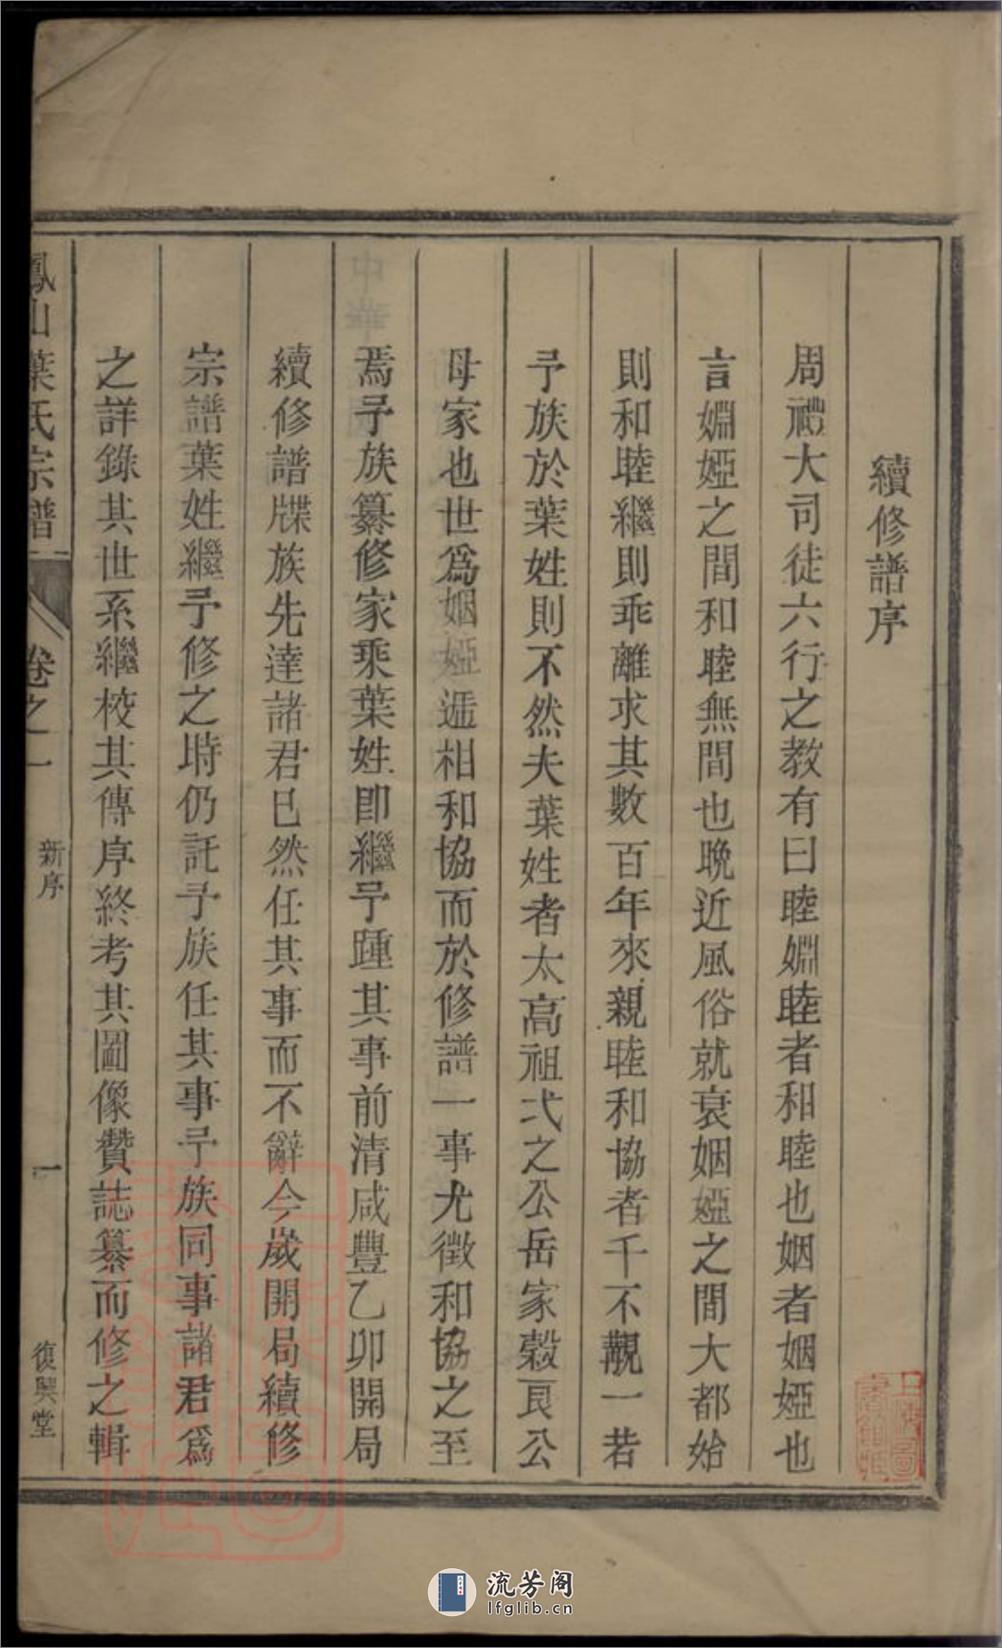 續修譜序
周禮大司徒六行之教有曰睦婣睦者和睦也姻者姻婭也
言婣婭之間和睦無間也晩近風俗就衰姻婭之間大都始
則和睦繼則乖離求其數百年來親睦和協者千不覯一若
予族於葉姓則不然夫葉姓者太高祖弌之公岳家榖艮公
母家也世爲姻婭遞相和協而於修譜一事尤徵和協之至
焉予族纂修家乘葉姓即繼予踵其事前清咸豐乙卯開局
續修譜牒族先達諸君已然任其事而不辭今嵗開局續修
宗譜葉姓繼予修之時仍託予族任其事予族同事諸君爲
之詳錄其世系繼校其傳序終考其圖像贊誌纂而修之輯
鳳山葉氏宗譜
卷之一
新序
一
復興堂
流芳阁
lfglib.cn